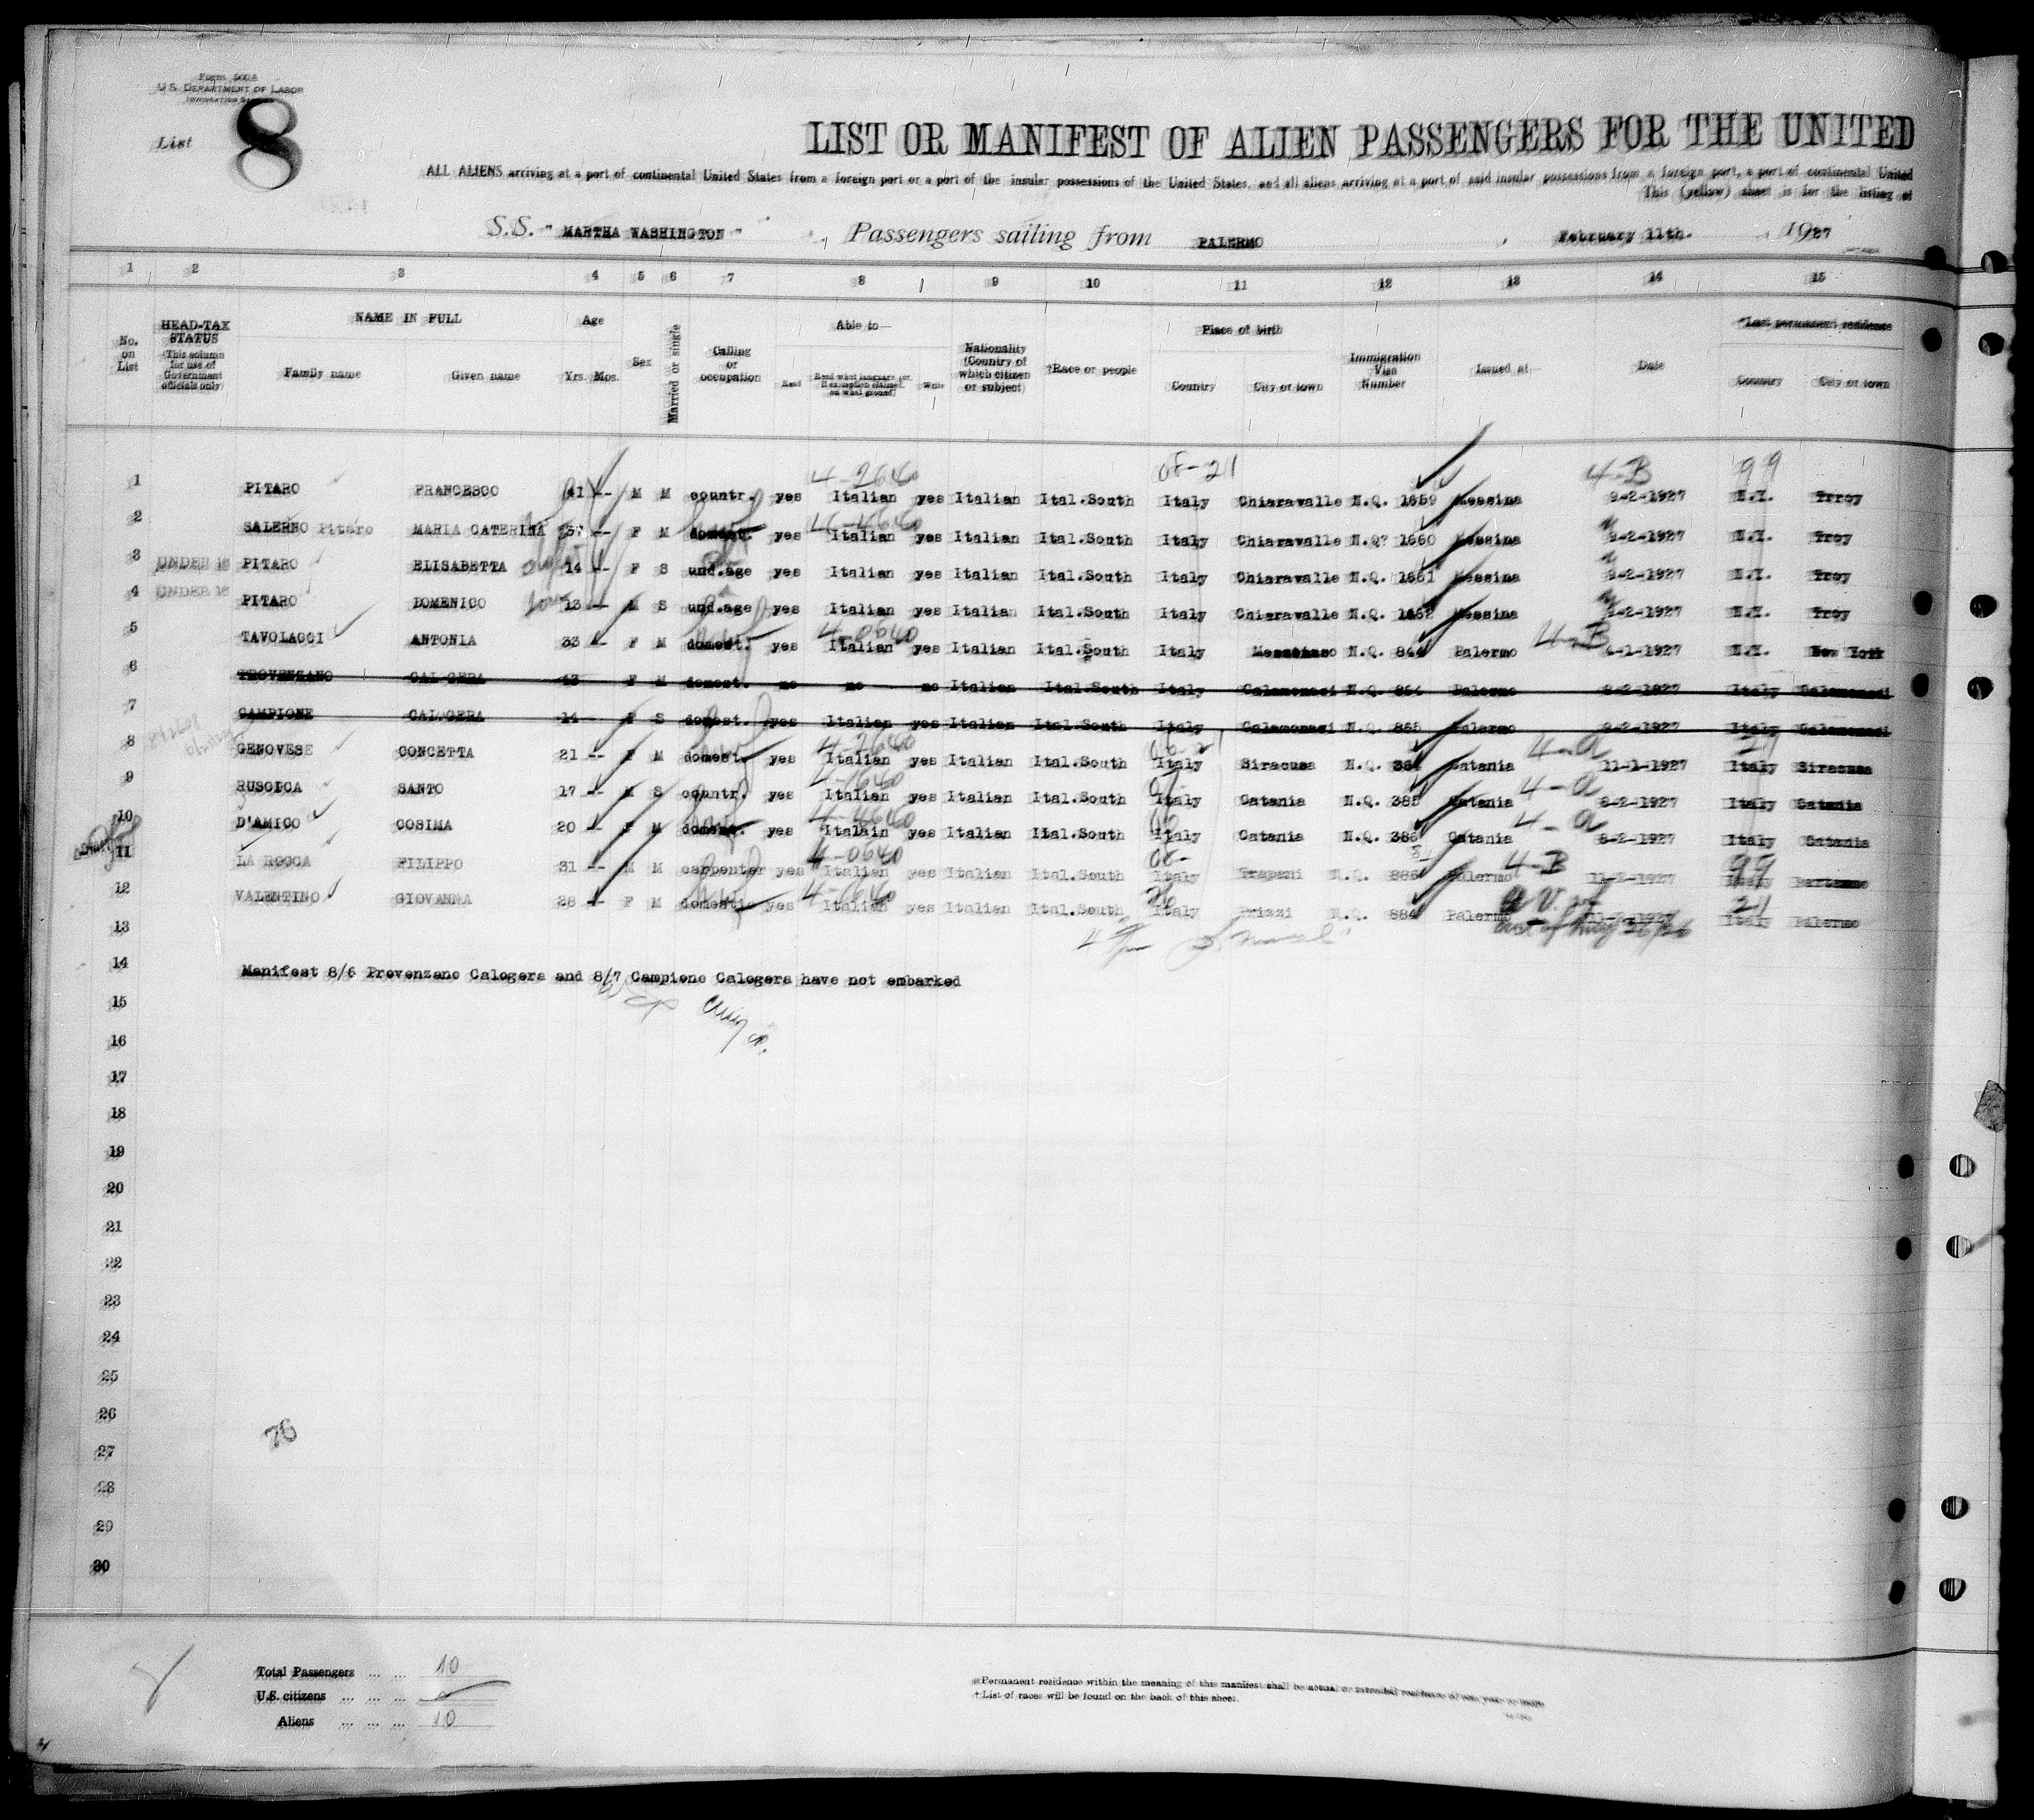 Form 500A
U.S. DEPARTMENT OF LABOR
List 8
LIST OR MANIFEST OF ALIEN PASSENGERS FOR THE UNITED
ALL ALIENS arriving at a port of continental United States from a foreign port or a port of the insular possessions of the United States, and all aliens arriving at a port of said insular possessions from a foreign port, a port of continental United
This (yellow) sheet is for the listing of
S.S. "MARTHA WASHINGTON", Passengers sailing from PALERMO, February 11th., 1927
1 2 3 4 5 6 7 8 9 10 11 12 13 14 15
No. on List
HEAD-TAX STATUS (This column for use of Government officials only)
NAME IN FULL
Family name Given name
Age
Yrs. Mos.
Sex
Married or single
Calling or occupation
Able to—
Read Read what language (or, if exemption claimed, on what ground) Write
Nationality (Country of which citizen or subject)
†Race or people
Place of birth
Country City or town
Immigration Visa Number
Issued at
Date
*Last permanent residence
Country City or town
1 PITARO FRANCESCO 41 -- M M countr. yes Italian yes Italian Ital.South Italy Chiaravalle N.Q. 1659 Messina 9-2-1927 N.Y. Trroy
4-2640 08-211 4-B 99
2 SALERNO Pitaro MARIA CATERINA 37 -- F M domest. yes Italian yes Italian Ital.South Italy Chiaravalle N.Q? 1660 Messina 9-2-1927 N.Y. Troy
3 UNDER 16 PITARO ELISABETTA 14 -- F S und.age yes Italian yes Italian Ital.South Italy Chiaravalle N.Q. 1661 Messina 9-2-1927 N.Y. Troy
4 UNDER 16 PITARO DOMENICO 13 -- M S und.age yes Italian yes Italian Ital.South Italy Chiaravalle N.Q. 1662 Messina 9-2-1927 N.Y. Troy
5 TAVOLACCI ANTONIA 33 -- F M domest. yes Italian yes Italian Ital.South Italy N.Q. 844 Palermo 4-B 4-1-1927 N.Y. New York
6 TROVENZANO CALOGERA 43 F M domest. no no no Italian Ital.South Italy Calamonaci N.Q. 864 Palermo 9-2-1927 Italy Calamonaci
7 CAMPIONE CALOGERA 14 -- F S domest. yes Italian yes Italian Ital.South Italy Calamonaci N.Q. 865 Palermo 9-2-1927 Italy Calamonaci
8 GENOVESE CONCETTA 21 -- F M domest. yes Italian yes Italian Ital.South Italy Siracusa N.Q. 364 Catania 4-a 11-1-1927 Italy Siracusa
9 RUSCICA SANTO 17 -- M S countr. yes Italian yes Italian Ital.South Italy Catania N.Q. 385 Catania 4-a 8-2-1927 Italy Catania
10 D'AMICO COSIMA 20 -- F M domest. yes Italain yes Italian Ital.South Italy Catania N.Q. 386 Catania 4-a 8-2-1927 Italy Catania
11 LA ROCCA FILIPPO 31 -- M M carpenter yes Italian yes Italian Ital.South Italy Trapani N.Q. 886 Palermo 4-B 11-2-1927 Italy Partanna
12 VALENTINO GIOVANNA 28 -- F M domestic yes Italian yes Italian Ital.South Italy Prizzi N.Q. 884 Palermo Italy Palermo
13
14 Manifest 8/6 Provenzano Calogera and 8/7 Campione Calogera have not embarked
15
16
17
18
19
20
21
22
23
24
25
26
76
27
28
29
30
Total Passengers ... ... 10
U.S. citizens ... ... ...
Aliens ... ... ... 10
*Permanent residence within the meaning of this manifest shall be actual or intended residence of one year or more
†List of races will be found on the back of this sheet.